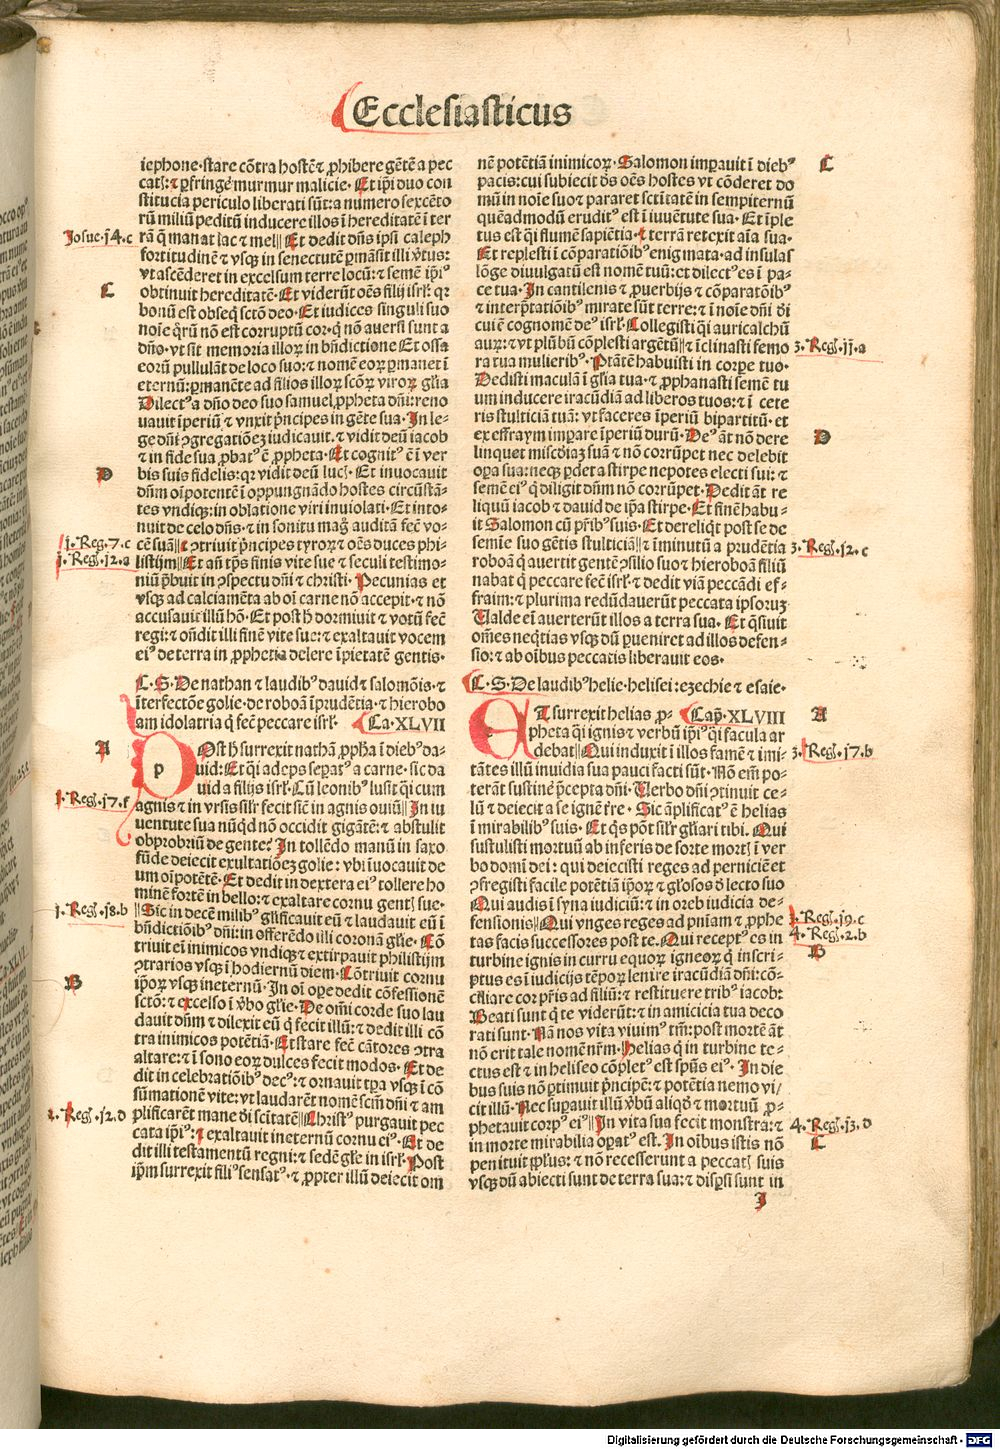 Ecclesiasticus
iephone·stare cōtra hostē⁊ ꝓhibere gētē a pec
catꝭ:⁊ ꝑfringē murmur malicie· Et ip̄i duo con
stituci a periculo liberati sūt:a numero sexcēto
rū miliū peditū inducere illos ī hereditatē ī ter
Josue.j4.c
rā q̄ manat lac ⁊ mel‖Et dedit dn̄s ip̄si caleph
fortitudinē ⁊ vsqꝫ in senectutē ꝑmāsit illi v̄tus:
vt ascēderet in excelsum terre locū:⁊ semē ip̄iꝰ
C
obtinuit hereditatē·Et viderūt oēs filij isrl̓: qꝛ
bonū est obseq̄ sctō deo·Et iudices singuli suo
noīe q̄rū nō est corruptū cor·q̄ nō auersi sunt a
dn̄o·vt sit memoria illoꝝ in bn̄dictione Et ossa
eoꝝ pullulāt de loco suo:⁊ nomē eoꝝ ꝑmanet ī
eternū:ꝑmanēte ad filios illoꝝ scōꝝ viroꝝ gl̓ia
Dilectꝰ a dn̄o deo suo samuel ꝓpheta dn̄i:reno
uauit īperiū ⁊ vnxit p̄ncipes in gēte sua·In le-
ge dn̄i ꝯgregatiōeꝫ iudicauit·⁊ vidit deū iacob
⁊ in fide sua ꝓbatꝰ ē ꝓpheta·Et cognitꝰ ē ī ver
D
bis suis fidelis:qꝛ vidit deū lucꝭ·Et inuocauit
dn̄m oīpotentē ī oppungnādo hostes circūstā-
tes vndiqꝫ:in oblatione viri inuiolati·Et into-
nuit de celo dn̄s·⁊ in sonitu mag̊ auditā fec̄ vo-
j.Reg.7.c
cē suā‖⁊ ꝯtriuit p̄ncipes tyroꝝ⁊ oēs duces phi-
j.Regꝭ.j2.a
listijm‖Et an̄ tp̄s finis vite sue ⁊ seculi testimo-
niū p̄buit in ꝯspectu dn̄i ⁊ christi·Pecunias et
vsqꝫ ad calciamēta ab oī carne nō accepit·⁊ nō
accusauit illū hō·Et post h̄ dormiuit ⁊ votū fec̄
regi:⁊ on̄dit illi finē vite sue:⁊ exaltauit vocem
eiꝰ de terra in ꝓphetia delere īpietatē gentis·
C·S·De nathan ⁊ laudibꝰ dauid ⁊ salomōis·⁊
īterfectōe golie·de roboā īprudētia·⁊ hierobo
am idolatria q̄ fec̄ peccare isrl̓· Ca·XLVII
A
p
Ost h̄ surrexit nathā ꝓpha ī diebꝰ da-
uid:Et q̄i adeps sepatꝰ a carne·sic da
uid a filijs isrl̓·Cū leonibꝰ lusit q̄i cum
j.Regꝭ.j7.f
agnis⁊ in vrsis sil̓r fecit sic̄ in agnis ouiū‖In iu
uentute sua nūqd nō occidit gigātē:⁊ abstulit
obprobriū de gente? In tollēdo manū in saxo
fūde deiecit exultatiōeꝫ golie: vbi īuocauit de
um oīpotētē·Et dedit in dextera eiꝰ tollere ho
minē fortē in bello:⁊ exaltare cornu gentꝭ sue·
j.Regꝭ.j8.b
‖Sic in decē milibꝰ gl̓ificauit eū ⁊ laudauit eū ī
bn̄dictiōibꝰ dn̄i:in offerēdo illi coronā gl̓ie·Cō
triuit eī inimicos vndiqꝫ⁊ extirpauit philistijm
ꝯtrarios vsqꝫ ī hodiernū diem·Cōtriuit cornu
B
ip̄oꝝ vsqꝫ ineternū·In oī oꝑe dedit cōfessionē
sctō:⁊ excelso ī v̄bo gl̓ie·De om̄i corde suo lau
dauit dn̄m ⁊ dilexit eū q̄ fecit illū:⁊ dedit illi cō
tra inimicos potētiā·Et stare fec̄ cātores ꝯtra
altare:⁊ ī sono eoꝝ dulces fecit modos·Et de
dit in celebratiōibꝰ decꝰ:⁊ ornauit tꝑa vsqꝫ ī cō
sūmationē vite:vt laudarēt nomē scm̄ dn̄i ⁊ am
2.Regꝭ.j2.d
plificarēt mane dī scītatē‖Christꝰ purgauit pec
cata ip̄iꝰ:⁊ exaltauit ineternū cornu eiꝰ·Et de
dit illi testamentū regni:⁊ sedē gl̓e in isrl̓·Post
ip̄m surrexit filiꝰ sensatꝰ·⁊ ꝓpter illū deiecit om
nē potētiā inimicoꝝ·Salomon imꝑauit ī diebꝰ
C
pacis:cui subiecit dꝰs oēs hostes vt cōderet do
mū in noīe suo⁊ pararet sctītatē in sempiternū
quēadmodū eruditꝰ est ī iuuētute sua·Et īple
tus est q̄i flumē sapiētia·⁊ terrā retexit aīa sua·
Et replesti ī cōparatiōibꝰ enigmata·ad insulas
lōge diuulgatū est nomē tuū:et dilectꝰ es ī pa-
ce tua·In cantilenis ⁊ ꝓuerbijs ⁊ cōparatōibꝰ
⁊ interp̄tatiōibꝰ mirate sūt terre:⁊ ī noīe dn̄i dī
cui ē cognomē deꝰ isrl̓·Collegisti q̄i auricalchū
3.Regꝭ.jj.a
auꝝ:⁊ vt plūbū cōplesti argētū‖⁊ īclinasti femo
ra tua mulieribꝰ·Ptātē habuisti in corꝑe tuo·
Dedisti maculā ī gl̓ia tua·⁊ ꝓphanasti semē tu
um inducere iracūdiā ad liberos tuos:⁊ ī cete
ris stulticiā tuā:vt faceres īperiū bipartitū·et
D
ex effraym imꝑare īperiū durū·Deꝰ āt nō dere
linquet mīscd̓iaꝫ suā ⁊ nō corrūpet nec delebit
oꝑa sua:neqꝫ ꝑdet a stirpe nepotes electi sui:⁊
semē eiꝰ q̄ diligit dn̄m nō corrūpet·Dedit āt re
liquū iacob ⁊ dauid de ip̄a stirpe·Et finē habu-
it Salomon cū pr̄ibꝰ suis·Et dereliqt̄ post se de
3.Regꝭ.j2.c
semīe suo gētis stulticiā‖⁊ īminutū a prudētia
roboā q̄ auertit gentē ꝯsilio suo⁊ hieroboā filiū
nabat q̄ peccare fec̄ isrl̓·⁊ dedit viā peccādi ef-
fraim:⁊ plurima redūdauerūt peccata ipsoruꝫ
Ualde eī auerterūt illos a terra sua·Et q̄siuit
om̄es neq̄tias vsqꝫ dū ꝑueniret ad illos defen-
sio:⁊ ab oībus peccatis liberauit eos·
C·S·De laudibꝰ helie·helisei:ezechie ⁊ esaie·
A
ET surrexit helias ꝓ- Cap̄·XLVIII
pheta q̄i ignis⁊ verbū ip̄iꝰ q̄i facula ar
3.Regꝭ.j7.b
debat‖Qui induxit ī illos famē⁊ imi-
tātes illū inuidia sua pauci facti sūt·Nō em̄ po-
terāt sustinē p̄cepta dn̄i·Uerbo dn̄i ꝯtinuit ce-
lū ⁊ deiecit a se ignē t̄re·Sic āplificatꝰ ē helias
ī mirabilibꝰ suis·Et q̄s pōt sil̓r gl̓iari tibi·Qui
sustulisti mortuū ab inferis de sorte mortꝭ ī ver
bo domī dei: qui deiecisti reges ad perniciē et
ꝯfregisti facile potētiā ip̄oꝝ ⁊ gl̓osos d̓ lecto suo
Qui audis ī syna iudiciū:⁊ in oreb iudicia de-
3.Regꝭ.j9.c
fensionis‖Qui vnges reges ad pniam ⁊ ꝓphe
4.Regꝭ.2.b
tas facis successores post te·Qui receptꝰ es in
B
turbine ignis in curru equoꝝ igneoꝝ q̄ inscri-
ptus es ī iudicijs tēpoꝝ lenire iracūdiā dn̄i:cō-
ciliare cor pr̄is ad filiū:⁊ restituere tribꝰ iacob:
Beati sunt q̄ te viderūt:⁊ in amicicia tua deco
rati sunt·Nā nos vita viuimꝰ tm̄:post mortē āt
nō erit tale nomē nr̄m·Helias q̄ in turbine te-
ctus est ⁊ in heliseo cōpletꝰ est spūs eiꝰ·In die
bus suis nō ꝑtimuit p̄ncipē:⁊ potētia nemo vi/
cit illū·Nec suꝑauit illū v̄bū aliqd̓ ⁊ mortuū ꝓ-
4.Regꝭ.j3.d
phetauit corpꝰ eiꝰ‖In vita sua fecit monstra:⁊
C
in morte mirabilia oꝑatꝰ est·In oībus istis nō
penituit ppl̓us:⁊ nō recesserunt a peccatꝭ suis
vsqꝫ dū abiecti sunt de terra sua:⁊ disp̄si sunt in
I
Digitalisierung gefördert durch die Deutsche Forschungsgemeinschaft - DFG